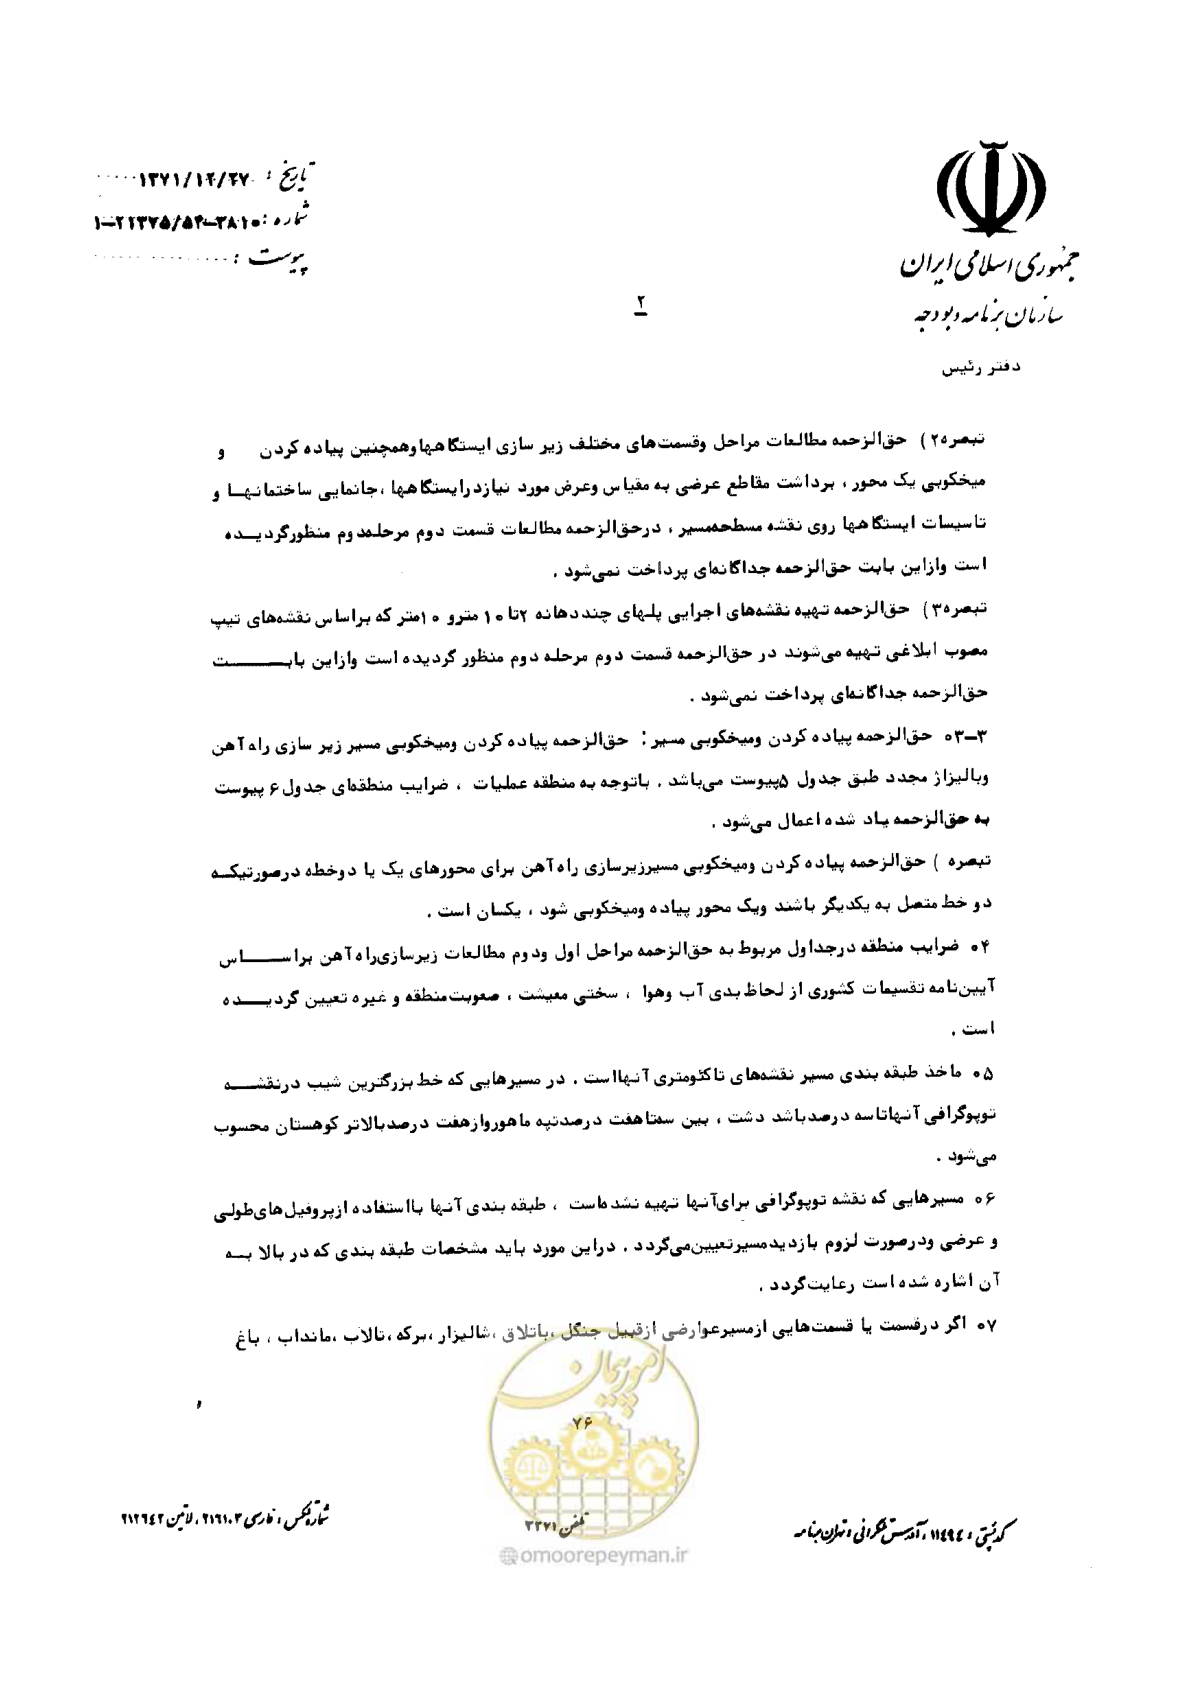 جمهوری اسلامی ایران
سازمان برنامه و بودجه
دفتر رئیس
تاریخ : ۱۳۷۱/۱۲/۲۷
شماره : ۱-۲۲۳۷۵/۵۴-۳۸۱۰
پیوست :
۲
تبصره۲) حق‌الزحمه مطالعات مراحل وقسمت‌های مختلف زیر سازی ایستگاهها وهمچنین پیاده کردن و
میخکوبی یک محور ، برداشت مقاطع عرضی به مقیاس وعرض مورد نیاز درایستگاهها ،جانمایی ساختمانها و
تاسیسات ایستگاهها روی نقشه مسطحه‌مسیر ، درحق‌الزحمه مطالعات قسمت دوم مرحله‌دوم منظورگردیده
است وازاین بابت حق‌الزحمه جداگانه‌ای پرداخت نمی‌شود .
تبصره۳) حق‌الزحمه تهیه نقشه‌های اجرایی پلهای چنددهانه ۲تا۱۰ مترو ۱۰متر که براساس نقشه‌های تیپ
مصوب ابلاغی تهیه می‌شوند در حق‌الزحمه قسمت دوم مرحله دوم منظور گردیده است وازاین بابت
حق‌الزحمه جداگانه‌ای پرداخت نمی‌شود .
۳-۰۳ حق‌الزحمه پیاده کردن ومیخکوبی مسیر : حق‌الزحمه پیاده کردن ومیخکوبی مسیر زیر سازی راه‌آهن
وبالیزاژ مجدد طبق جدول ۵پیوست می‌باشد . باتوجه به منطقه عملیات ، ضرایب منطقه‌ای جدول۶ پیوست
به حق‌الزحمه یاد شده اعمال می‌شود .
تبصره ) حق‌الزحمه پیاده کردن ومیخکوبی مسیرزیرسازی راه‌آهن برای محورهای یک یا دوخطه درصورتیکه
دو خط متصل به یکدیگر باشند ویک محور پیاده ومیخکوبی شود ، یکسان است .
۰۴ ضرایب منطقه درجداول مربوط به حق‌الزحمه مراحل اول ودوم مطالعات زیرسازی‌راه‌آهن براساس
آیین‌نامه تقسیمات کشوری از لحاظ بدی آب وهوا ، سختی معیشت ، صعوبت‌منطقه و غیره تعیین گردیده
است .
۰۵ ماخذ طبقه بندی مسیر نقشه‌های تاکئومتری آنهااست . در مسیرهایی که خط بزرگترین شیب درنقشه
توپوگرافی آنهاتاسه درصدباشد دشت ، بین سه‌تاهفت درصدتپه ماهوروازهفت درصدبالاتر کوهستان محسوب
می‌شود .
۰۶ مسیرهایی که نقشه توپوگرافی برای‌آنها تهیه نشده‌است ، طبقه بندی آنها بااستفاده ازپروفیل‌های‌طولی
و عرضی ودرصورت لزوم بازدیدمسیرتعیین‌می‌گردد . دراین مورد باید مشخصات طبقه بندی که در بالا به
آن اشاره شده است رعایت‌گردد .
۰۷ اگر درقسمت یا قسمت‌هایی ازمسیرعوارضی ازقبیل جنگل ،باتلاق ،شالیزار ،برکه ،تالاب ،مانداب ، باغ
امور پیمان
۷۶
کدپستی : ۱۱۴۹۴ ، آدرس تلگرافی : تهران برنامه
تلفن ۳۲۷۱
شماره فکس : فارسی ۲۱۶۱۰۳ ، لاتین ۲۱۲۶۴۲
@omoorepeyman.ir